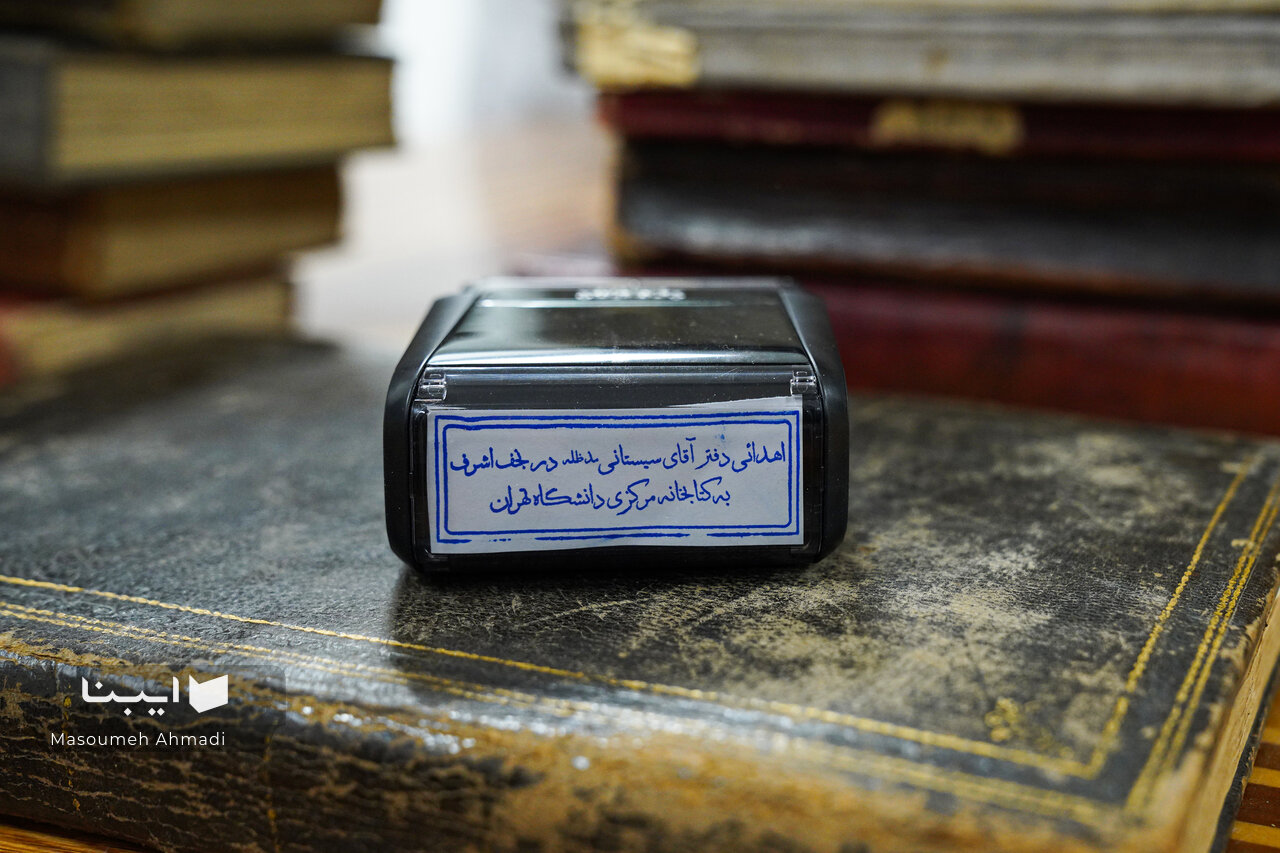 اهدائی دفتر آقای سیستانی مدظله در نجف اشرف
به کتابخانه مرکزی دانشگاه تهران
ایبنا
Masoumeh Ahmadi